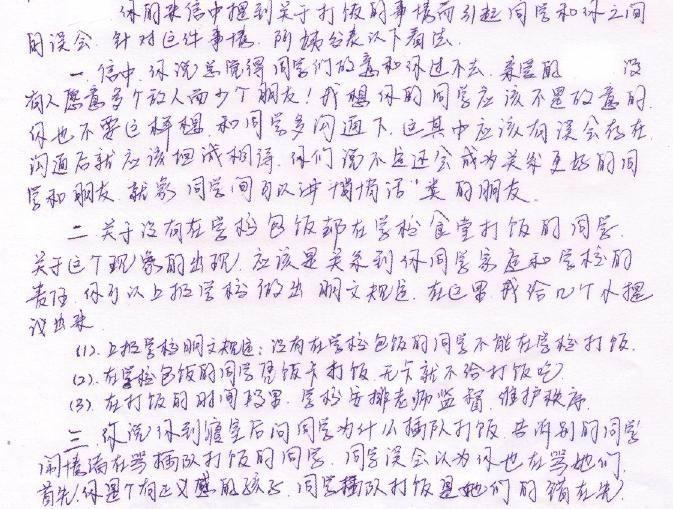 你的来信中提到关于打饭的事情而引起同学和你之间
的误会.针对这件事情.阿姨发表以下看法.
一.信中.你说总觉得同学们故意和你过不去.亲爱的 没
有人愿意多个敌人而少个朋友!我想你的同学应该不是故意的.
你也不要这样想.和同学多沟通下.这其中应该有误会存在.
沟通后就应该坦诚相待.你们说不定还会成为关系更好的同
学和朋友.就象同学间可以讲"悄悄话"类的朋友.
二.关于没有在学校包饭却在学校食堂打饭的同学.
关于这个现象的出现.应该是关系到你同学家庭和学校的
责任.你可以上报学校做出明文规定.在这里.我给几个小提
议出来.
(1).上报学校明文规定:没有在学校包饭的同学不能在学校打饭.
(2).在学校包饭的同学凭饭卡打饭.无卡就不给打饭吃.
(3).在打饭的时间段里.学校安排老师监督.维护秩序.
三.你说你到寝室后问同学为什么插队打饭.告诉别的同学
闹情绪在骂插队打饭的同学.同学误会以为你也在骂她们.
首先.你是个有正义感的孩子.同学插队打饭是她们的错在先.